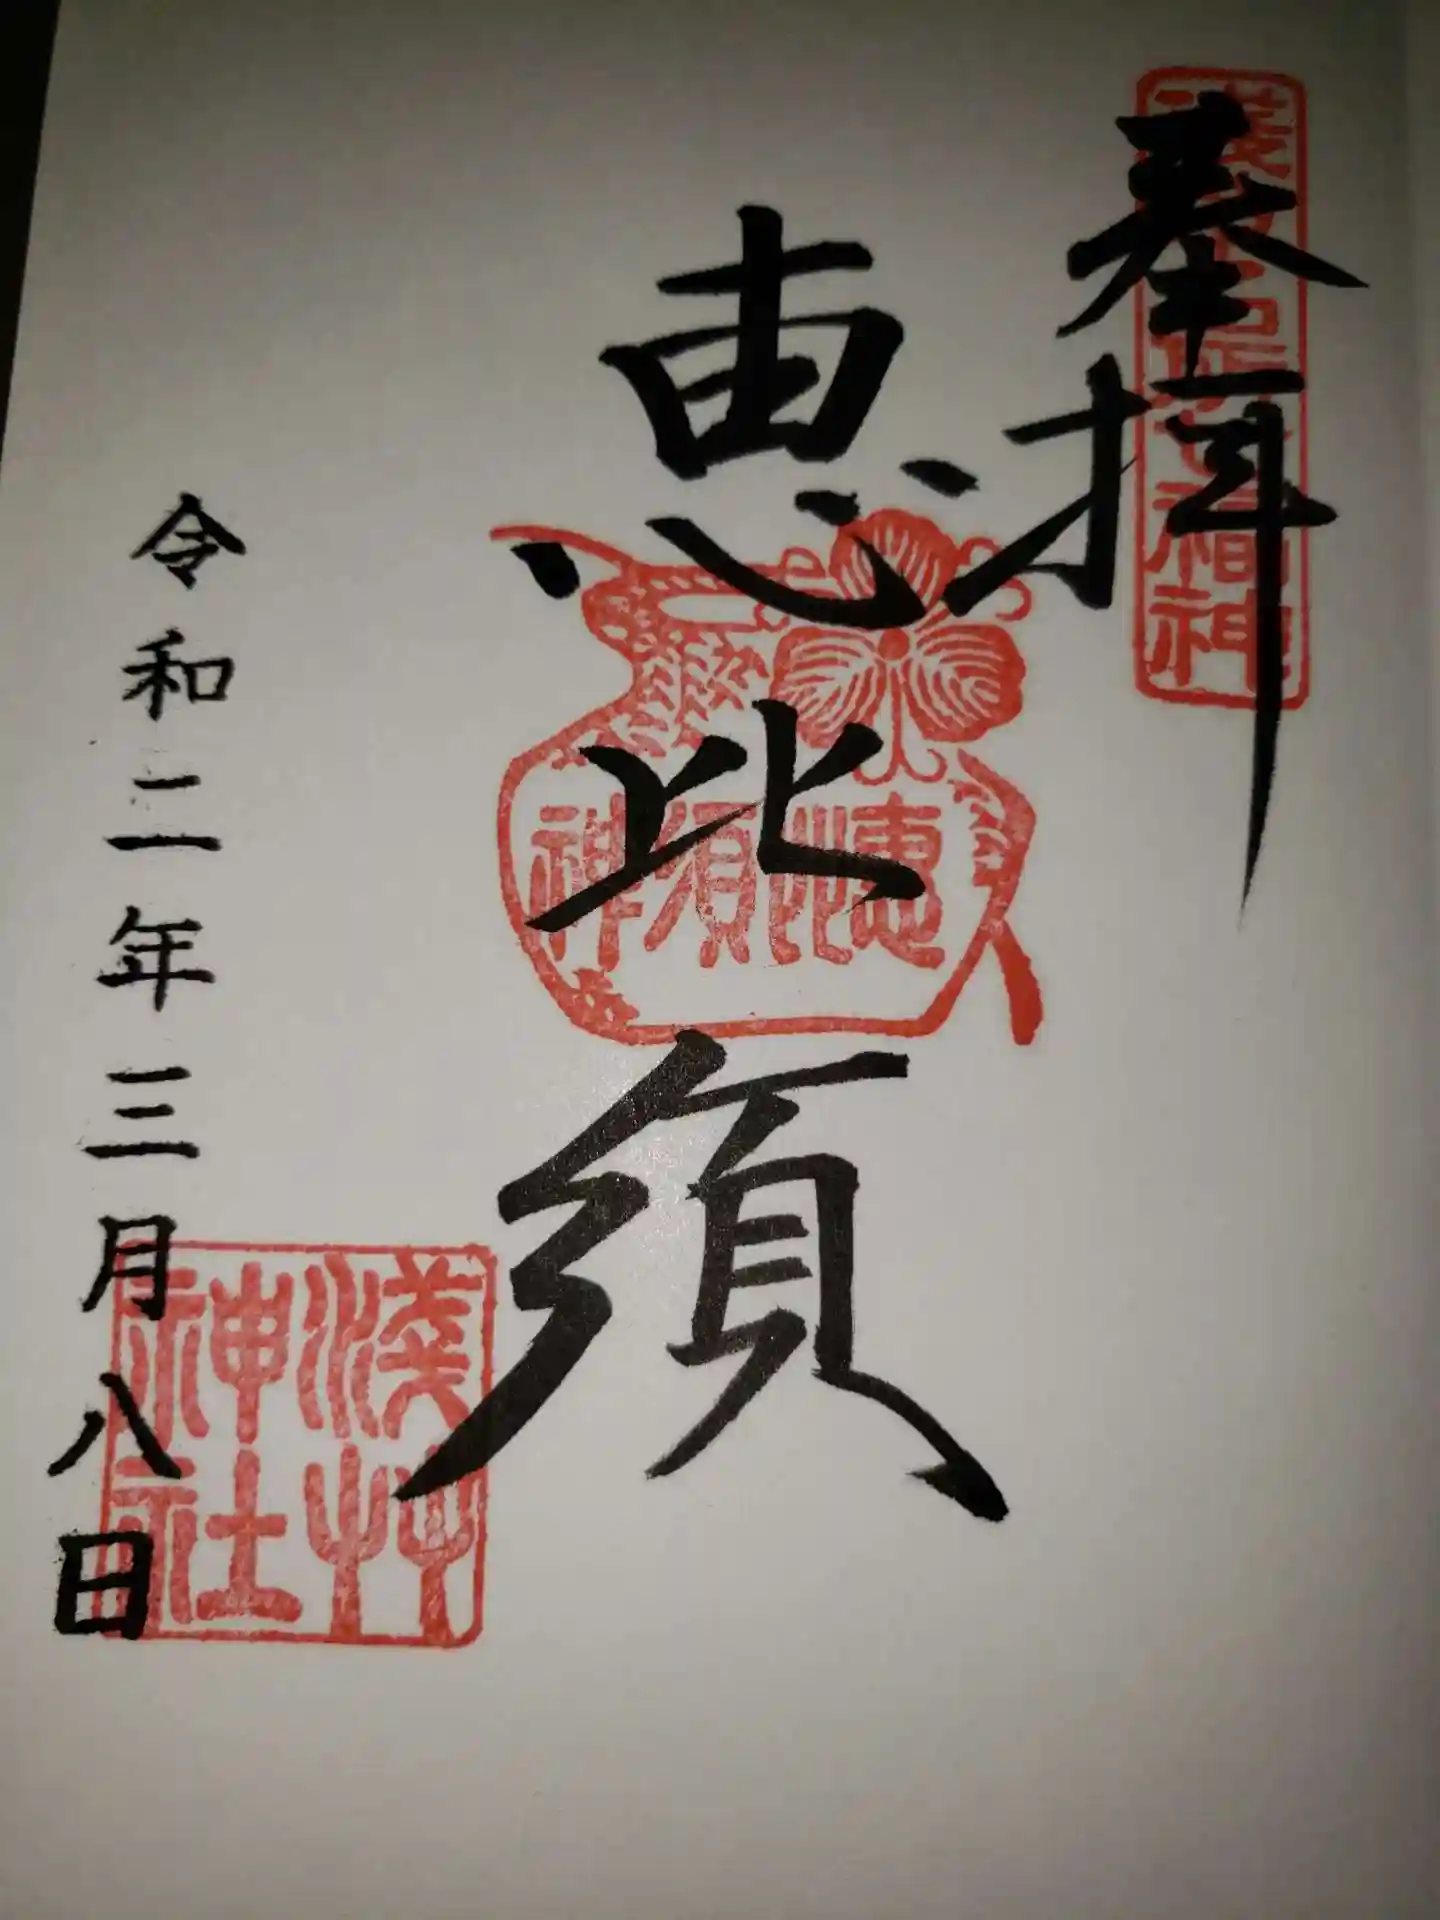 奉拝
浅草名所七福神
恵比須
恵比須神
令和二年三月八日
淺草神社